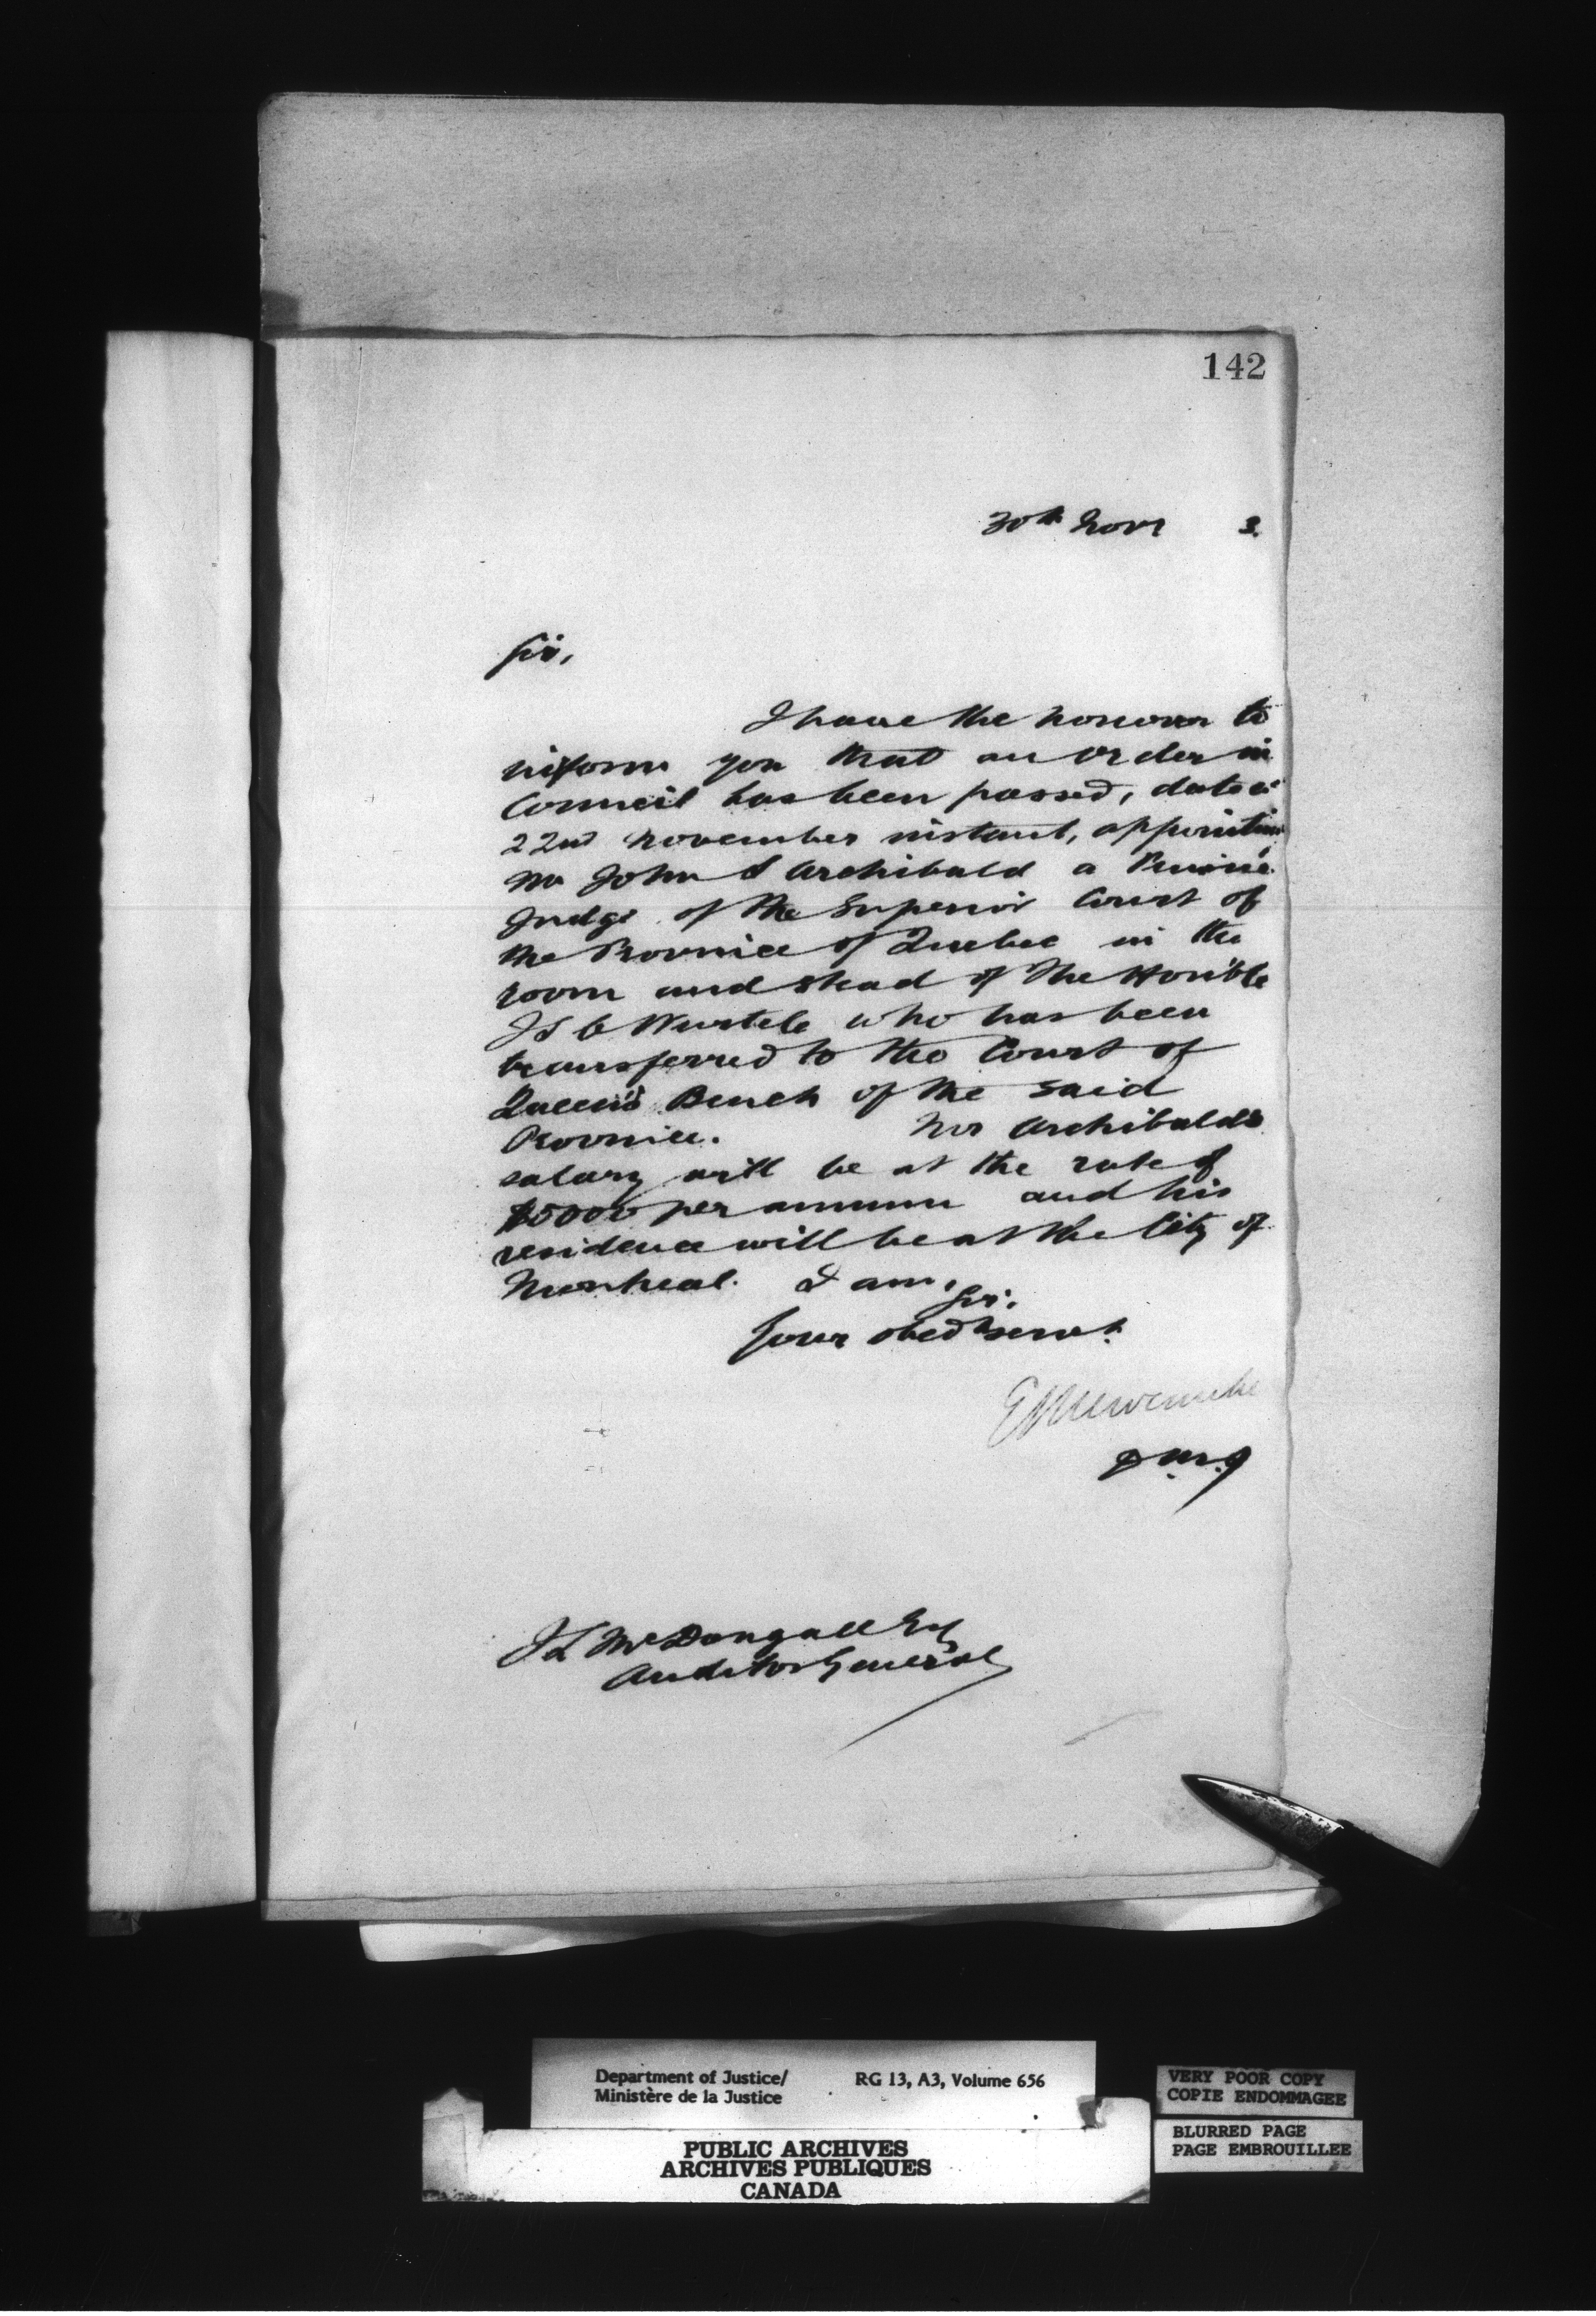 142
30th Novr 3.
Sir,
I have the honour to
inform you that an Order in
Council has been passed, dated
22nd November instant, appointing
Mr John S Archibald a Puisné
Judge of the Superior Court of
the Province of Quebec in the
room and stead of The Hon'ble
J S C Wurtele who has been
transferred to the Court of
Queen's Bench of the said
Province. Mr Archibald's
salary will be at the rate of
$5000 per annum and his
residence will be at the City of
Montreal. I am,
Sir,
Your obedt servt.
E L Newcombe
D.M.J
J L McDougall Esq
Auditor General
Department of Justice/ RG 13, A3, Volume 656
Ministère de la Justice
PUBLIC ARCHIVES
ARCHIVES PUBLIQUES
CANADA
VERY POOR COPY
COPIE ENDOMMAGEE
BLURRED PAGE
PAGE EMBROUILLEE